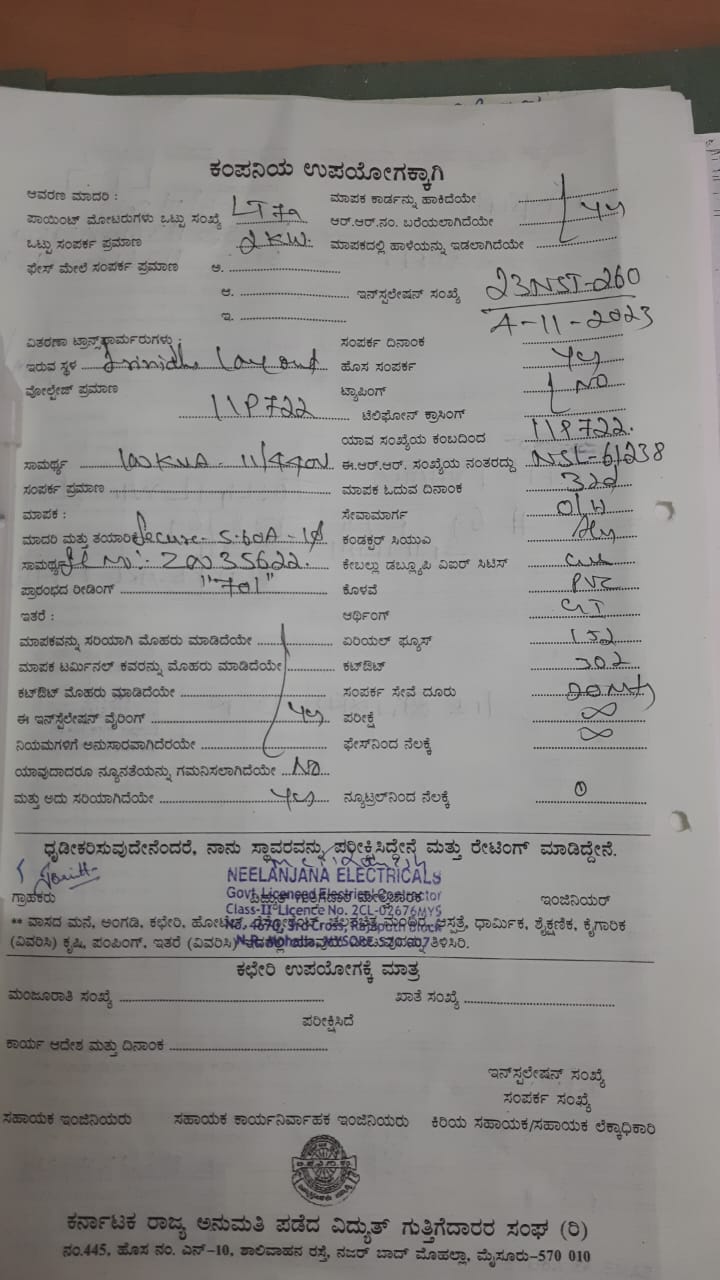 ಕಂಪನಿಯ ಉಪಯೋಗಕ್ಕಾಗಿ
ಆವರಣ ಮಾದರಿ : ಮಾಪಕ ಕಾರ್ಡನ್ನು ಹಾಕಿದೆಯೇ
ಪಾಯಿಂಟ್ ಮೋಟರುಗಳು ಒಟ್ಟು ಸಂಖ್ಯೆ LT7a ಆರ್.ಆರ್.ನಂ. ಬರೆಯಲಾಗಿದೆಯೇ Yes
ಒಟ್ಟು ಸಂಪರ್ಕ ಪ್ರಮಾಣ 2KW. ಮಾಪಕದಲ್ಲಿ ಹಾಳೆಯನ್ನು ಇಡಲಾಗಿದೆಯೇ
ಫೇಸ್ ಮೇಲೆ ಸಂಪರ್ಕ ಪ್ರಮಾಣ ಅ.
ಆ. ಇನ್‌ಸ್ಪಲೇಷನ್ ಸಂಖ್ಯೆ 23NST-260
ಇ. 4-11-2023
ವಿತರಣಾ ಟ್ರಾನ್ಸ್‌ಫಾರ್ಮರುಗಳು : ಸಂಪರ್ಕ ದಿನಾಂಕ
ಇರುವ ಸ್ಥಳ Srinidhi layout ಹೊಸ ಸಂಪರ್ಕ Yes
ವೋಲ್ಟೇಜ್ ಪ್ರಮಾಣ ಟ್ಯಾಪಿಂಗ್ NO
11P722 ಟೆಲಿಫೋನ್ ಕ್ರಾಸಿಂಗ್
ಯಾವ ಸಂಖ್ಯೆಯ ಕಂಬದಿಂದ 11P722.
ಸಾಮರ್ಥ್ಯ 100KVA - 11/440V ಈ.ಆರ್.ಆರ್. ಸಂಖ್ಯೆಯ ನಂತರದ್ದು NSL-61238
ಸಂಪರ್ಕ ಪ್ರಮಾಣ ಮಾಪಕ ಓದುವ ದಿನಾಂಕ 322
ಮಾಪಕ : ಸೇವಾಮಾರ್ಗ O/H
ಮಾದರಿ ಮತ್ತು ತಯಾರಿ Secure- 5-60A - 1ø ಕಂಡಕ್ಟರ್ ಸಿಯುವಿ Aly
ಸಾಮರ್ಥ್ಯ Sl No:- Z0035622. ಕೇಬಲ್ಲು ಡಬ್ಲ್ಯೂಪಿ ವಿಐರ್ ಸಿಟಿಸ್
ಪ್ರಾರಂಭದ ರೀಡಿಂಗ್ "701" ಕೊಳವೆ PVC
ಇತರೆ : ಆರ್ಥಿಂಗ್ GI
ಮಾಪಕವನ್ನು ಸರಿಯಾಗಿ ಮೊಹರು ಮಾಡಿದೆಯೇ ಏರಿಯಲ್ ಫ್ಯೂಸ್ 152
ಮಾಪಕ ಟರ್ಮಿನಲ್ ಕವರನ್ನು ಮೊಹರು ಮಾಡಿದೆಯೇ ಕಟ್‌ಔಟ್ 302
ಕಟ್‌ಔಟ್ ಮೊಹರು ಮಾಡಿದೆಯೇ ಸಂಪರ್ಕ ಸೇವೆ ದೂರು 20Mts
ಈ ಇನ್‌ಸ್ಪೆಲೇಷನ್ ವೈರಿಂಗ್ Yes ಪರೀಕ್ಷೆ ∞
ನಿಯಮಗಳಿಗೆ ಅನುಸಾರವಾಗಿದೆರಯೇ ಫೇಸ್‌ನಿಂದ ನೆಲಕ್ಕೆ ∞
ಯಾವುದಾದರೂ ನ್ಯೂನತೆಯನ್ನು ಗಮನಿಸಲಾಗಿದೆಯೇ NO
ಮತ್ತು ಅದು ಸರಿಯಾಗಿದೆಯೇ Yes ನ್ಯೂಟ್ರಲ್‌ನಿಂದ ನೆಲಕ್ಕೆ 0
ಧೃಡೀಕರಿಸುವುದೇನೆಂದರೆ, ನಾನು ಸ್ಥಾವರವನ್ನು ಪರೀಕ್ಷಿಸಿದ್ದೇನೆ ಮತ್ತು ರೇಟಿಂಗ್ ಮಾಡಿದ್ದೇನೆ.
NEELANJANA ELECTRICALS
Govt Licenced Electrical Contractor
ಗ್ರಾಹಕರು ಇಂಜಿನಿಯರ್
Class-II Licence No. 2CL-02676MYS
** ವಾಸದ ಮನೆ, ಅಂಗಡಿ, ಕಛೇರಿ, ಹೋಟೆಲ್, ಮಂದಿರ, ಆಸ್ಪತ್ರೆ, ಧಾರ್ಮಿಕ, ಶೈಕ್ಷಣಿಕ, ಕೈಗಾರಿಕ
No. 4670, 3rd Cross, Rajaputh Block
(ವಿವರಿಸಿ) ಕೃಷಿ, ಪಂಪಿಂಗ್, ಇತರೆ (ವಿವರಿಸಿ) ತಿಳಿಸಿರಿ.
N.R. Mohalla, MYSORE-570 007
ಕಛೇರಿ ಉಪಯೋಗಕ್ಕೆ ಮಾತ್ರ
ಮಂಜೂರಾತಿ ಸಂಖ್ಯೆ ಖಾತೆ ಸಂಖ್ಯೆ
ಪರೀಕ್ಷಿಸಿದೆ
ಕಾರ್ಯ ಆದೇಶ ಮತ್ತು ದಿನಾಂಕ
ಇನ್‌ಸ್ಪಲೇಷನ್ ಸಂಖ್ಯೆ
ಸಂಪರ್ಕ ಸಂಖ್ಯೆ
ಸಹಾಯಕ ಇಂಜಿನಿಯರು ಸಹಾಯಕ ಕಾರ್ಯನಿರ್ವಾಹಕ ಇಂಜಿನಿಯರು ಕಿರಿಯ ಸಹಾಯಕ/ಸಹಾಯಕ ಲೆಕ್ಕಾಧಿಕಾರಿ
ಕರ್ನಾಟಕ ರಾಜ್ಯ ಅನುಮತಿ ಪಡೆದ ವಿದ್ಯುತ್ ಗುತ್ತಿಗೆದಾರರ ಸಂಘ (ರಿ)
ನಂ.445, ಹೊಸ ನಂ. ಎನ್-10, ಶಾಲಿವಾಹನ ರಸ್ತೆ, ನಜರ್ ಬಾದ್ ಮೊಹಲ್ಲಾ, ಮೈಸೂರು-570 010